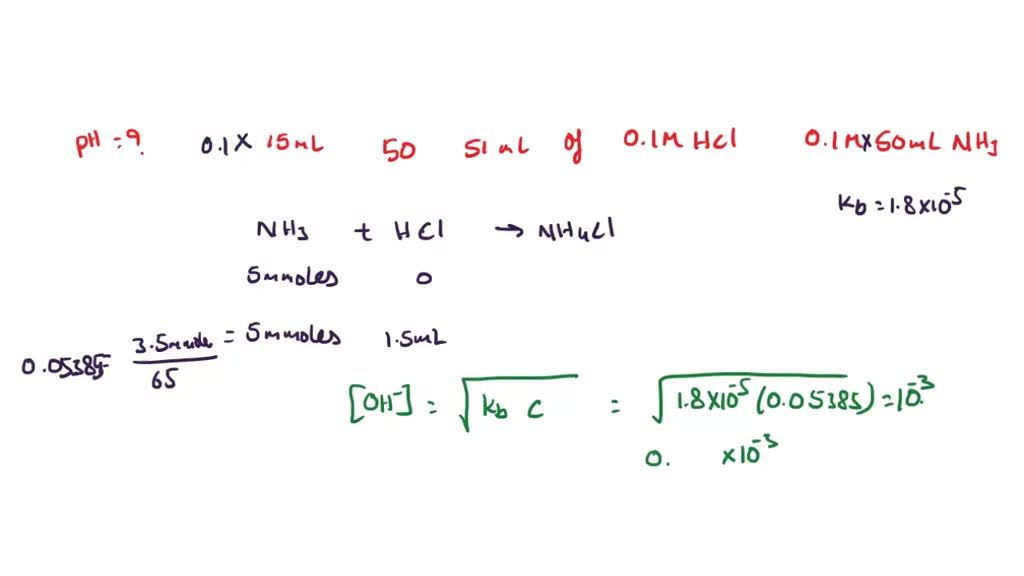 pH = ? 0.1 × 15 mL 50 51 mL of 0.1M HCl 0.1M × 50mL NH3
Kb = 1.8×10^-5
NH3 + HCl → NH4Cl
5mmoles 0
0.05385 = 3.5mmole / 65 = 5mmoles 1.5mL
[OH-] = √Kb C = √1.8×10^-5 (0.05385) = 10^-3
0. ×10^-3